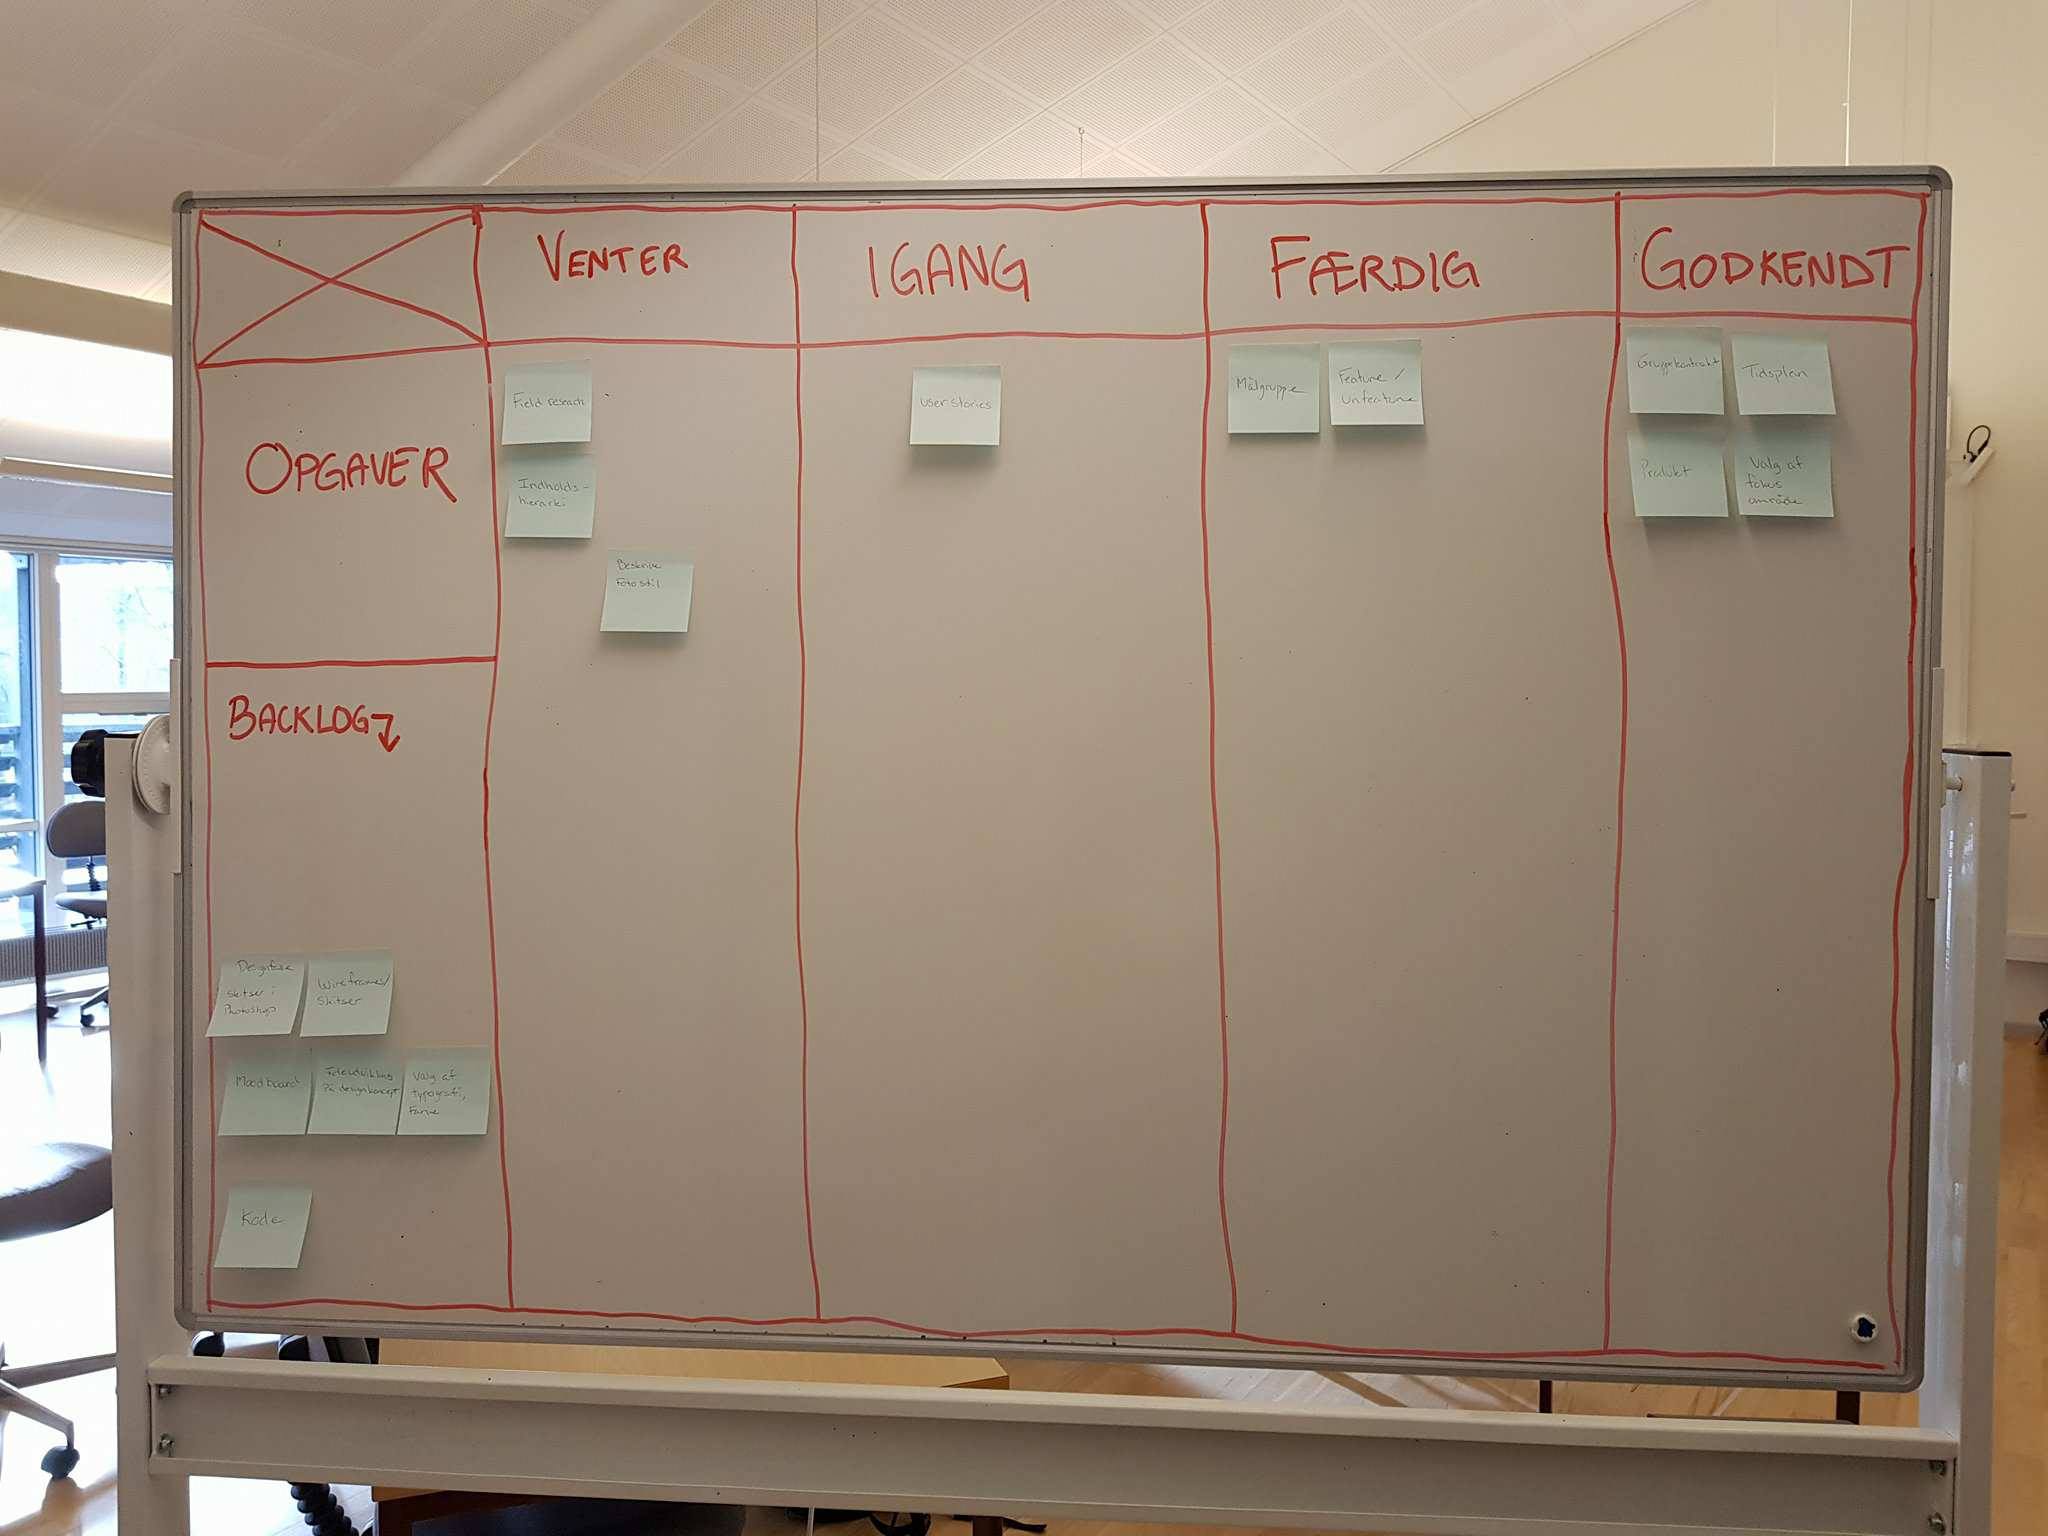 VENTER
IGANG
FÆRDIG
GODKENDT
OPGAVER
Field reseach
Indholds-
hieraki
Beskrive
Fotostil
User stories
Målgruppe
Feature /
Unfeature
Gruppekontrakt
Tidsplan
Produkt
Valg af
fokus
område
BACKLOG
Skitser i
Photoshop
Wireframes/
Skitser
Moodboard
Ideudvikling
På designkoncept
Valg af
typografi,
Farve
Kode